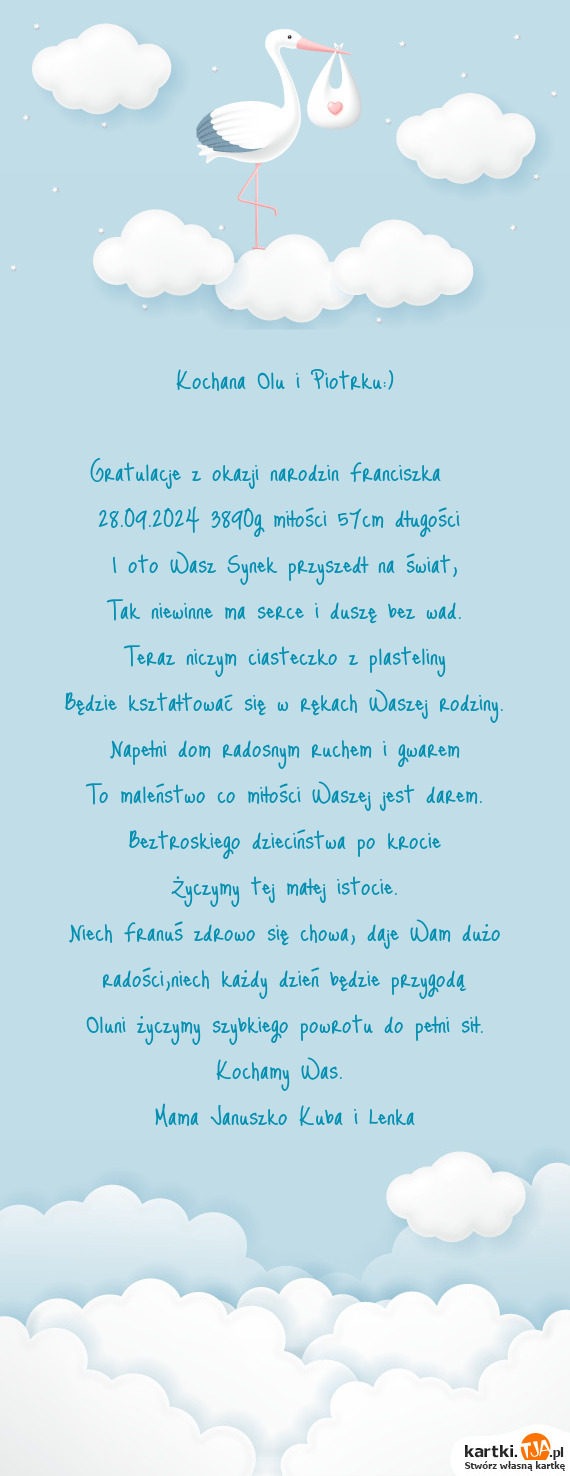 Kochana Olu i Piotrku:)
Gratulacje z okazji narodzin Franciszka
28.09.2024 3890g miłości 57cm długości
I oto Wasz Synek przyszedł na świat,
Tak niewinne ma serce i duszę bez wad.
Teraz niczym ciasteczko z plasteliny
Będzie kształtować się w rękach Waszej rodziny.
Napełni dom radosnym ruchem i gwarem
To maleństwo co miłości Waszej jest darem.
Beztroskiego dzieciństwa po krocie
Życzymy tej małej istocie.
Niech Franuś zdrowo się chowa, daje Wam dużo
radości,niech każdy dzień będzie przygodą
Oluni życzymy szybkiego powrotu do pełni sił.
Kochamy Was.
Mama Januszko Kuba i Lenka
kartki.TJA.pl
Stwórz własną kartkę